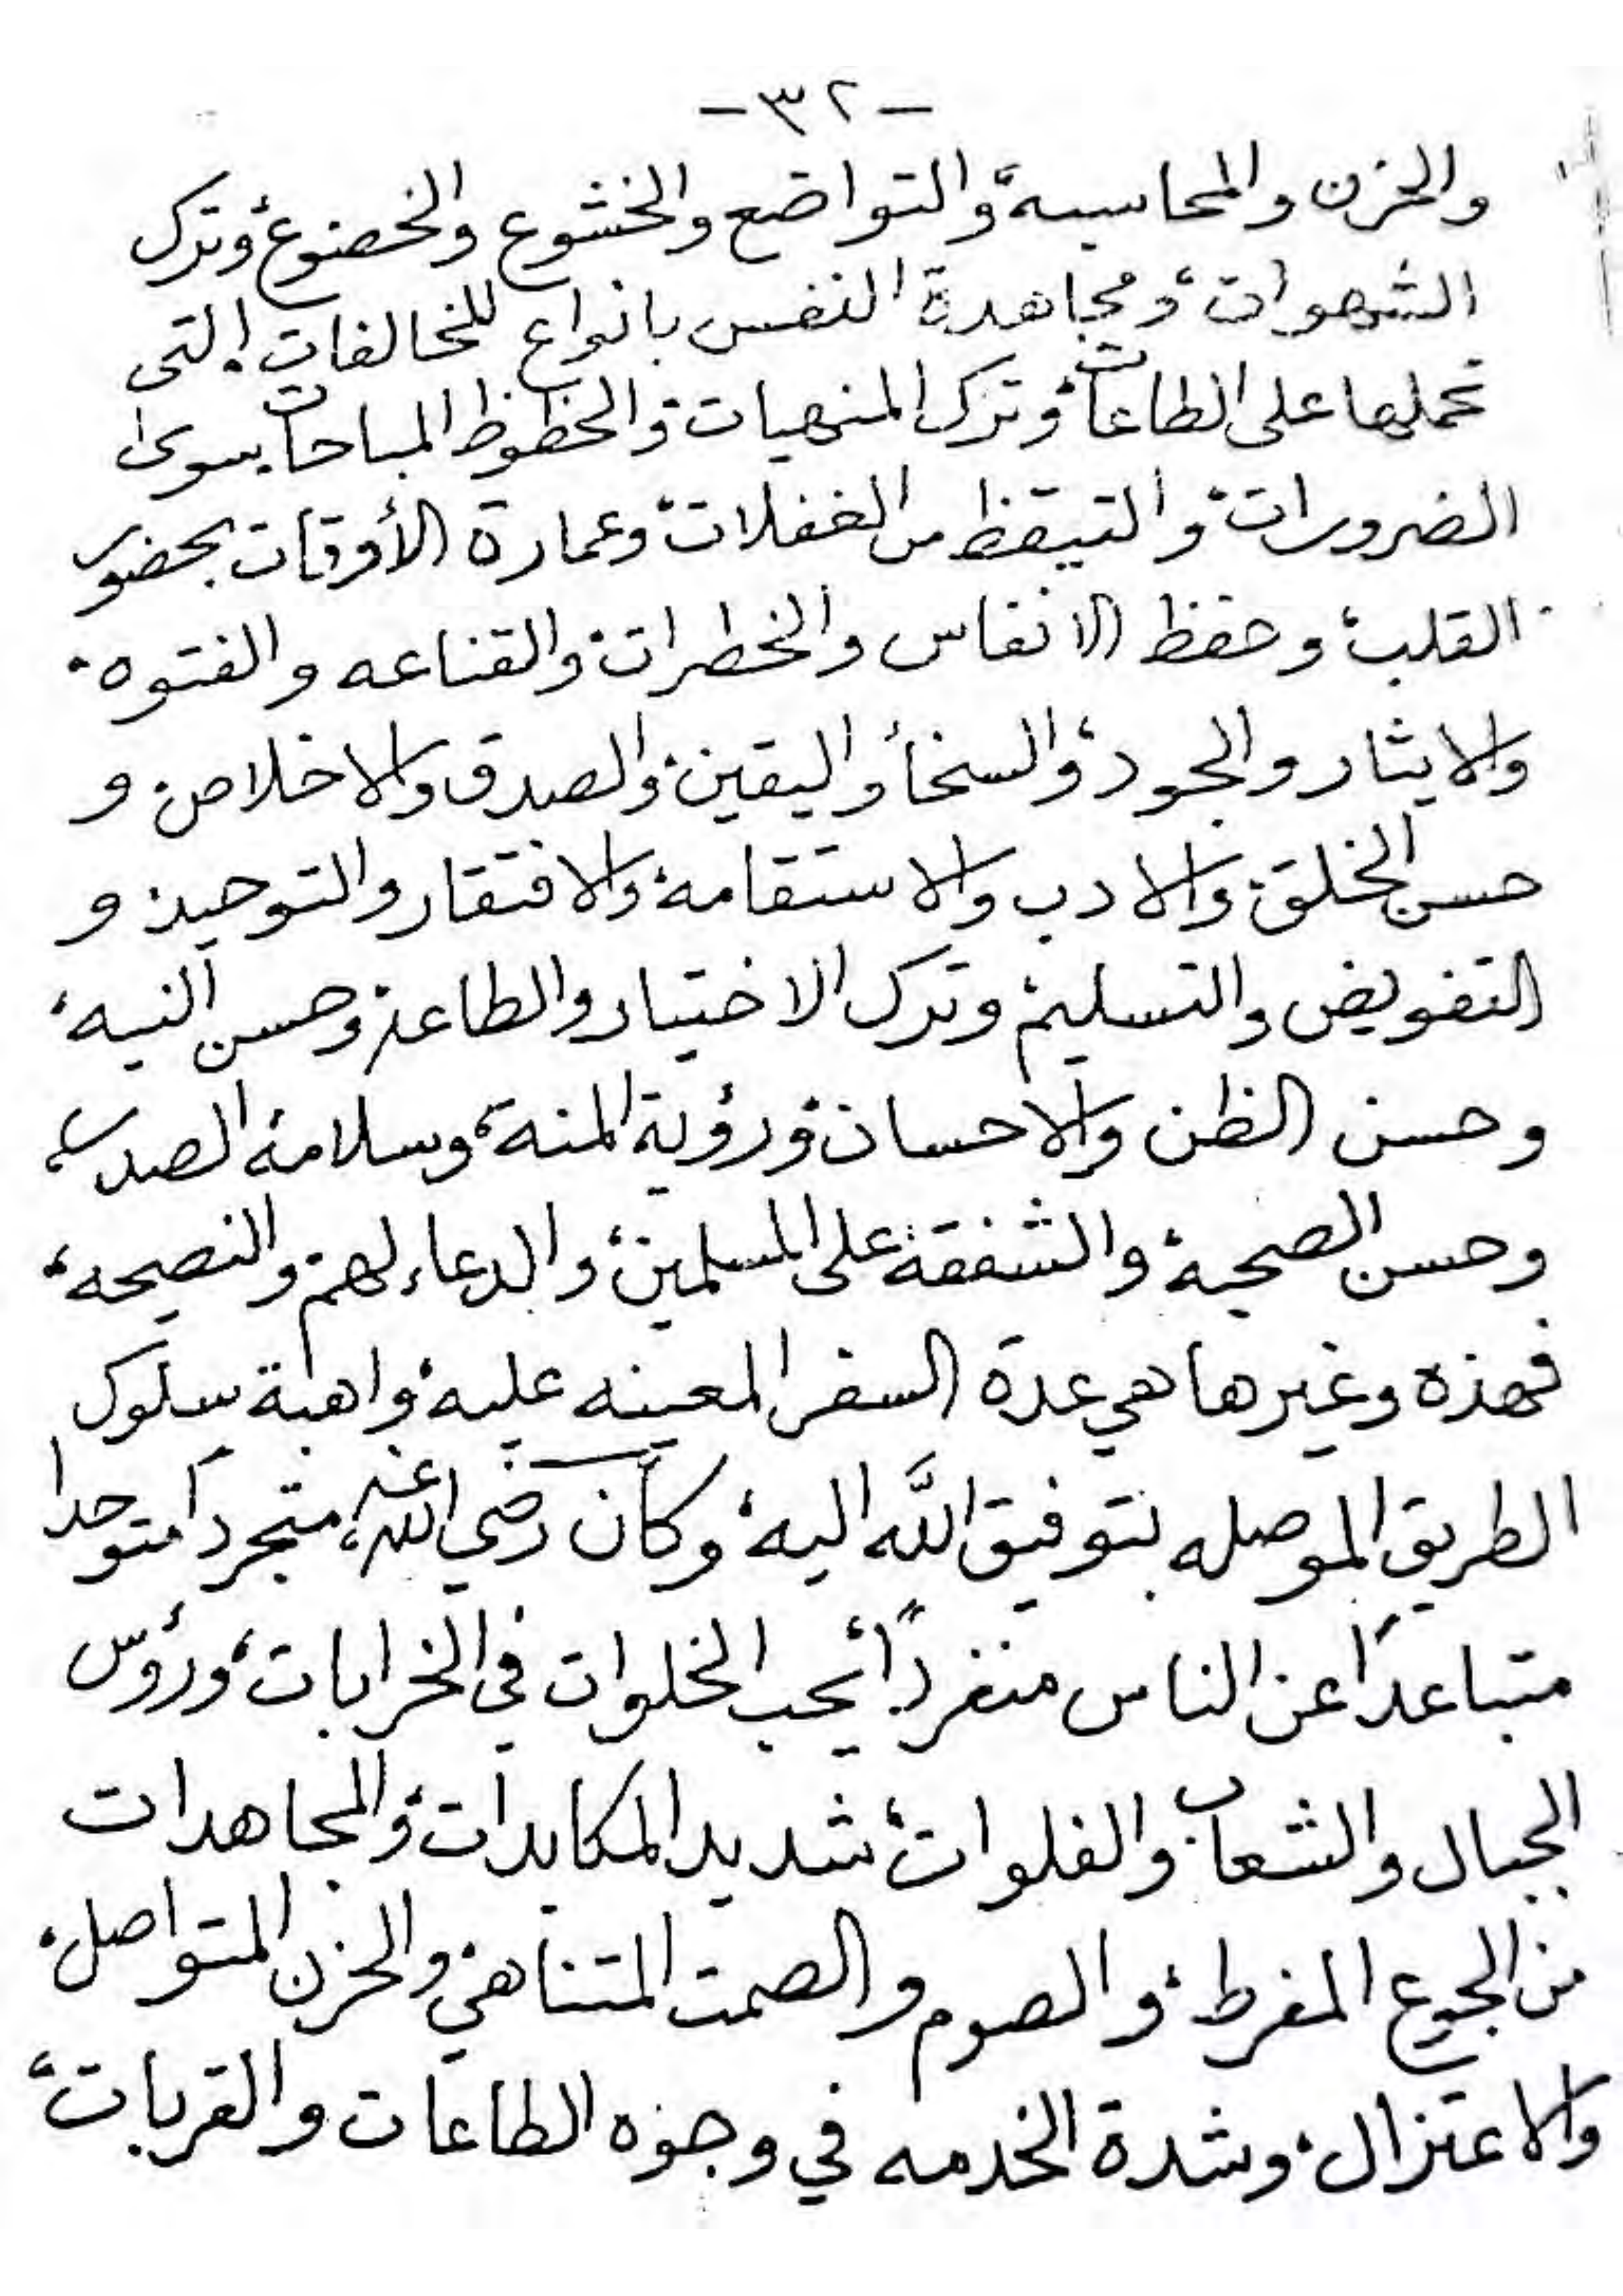 -٣٢-
والحزن والمحاسبة، والتواضع والخشوع والخضوع، وترك
الشهوات، ومجاهدة النفس بانواع المخالفات التى
تحملها على الطاعات، وترك المنهيات، والحظوظ المباحات سوى
الضرورات، والتيقظ من الغفلات، وعمارة الأوقات بحضور
القلب، وحفظ الانفاس والخطرات، والقناعه والفتوه،
والايثار والجود، والسخأ واليقين، والصدق والاخلاص، و
حسن الخلق، والادب والاستقامة، والافتقار والتوحيد، و
التفويض والتسليم، وترك الاختيار والطاعة، وحسن النيه،
وحسن الظن والاحسان، ورؤية المنه، وسلامة الصدر،
وحسن الصحبة، والشفقة على المسلمين، والدعاء لهم، والنصيحه،
فهذه وغيرها هي عدة السفر المعينه عليه، واهبة سلوك
الطريق الموصله بتوفيق الله اليه، وكان رضي الله عنه، متجرداً متوحدا
متباعداً عن الناس منفرداً، يحب الخلوات في الخرابات، ورؤس
الجبال والشعاب، والفلوات، شديد المكابدات، والمجاهدات
من الجوع المفرط، والصوم والصمت المتناهي، والحزن المتواصل،
والاعتزال، وشدة الخدمه في وجوه الطاعات والقربات،